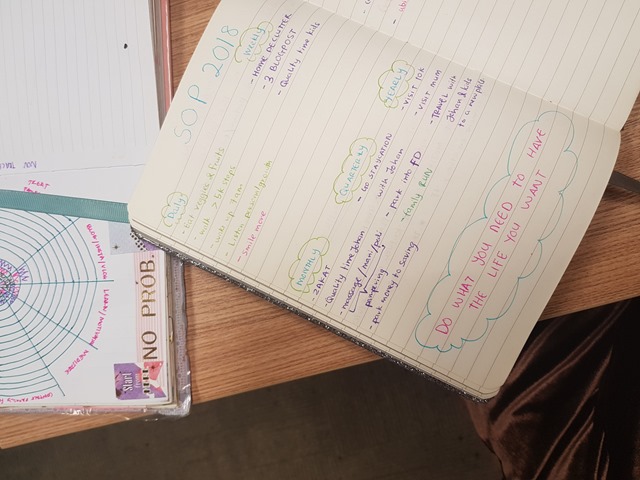 SOP 2018
Daily
- Eat veggies & fruits
- walk > 8k steps
- wake up 5am
- Listen personal growth
- Smile more
WEEKLY
- HOME DECLUTTER
- 3 BLOGPOST
- Quality time kids
MONTHLY
- ZAKAT
- Quality time Johan
- massage/mani/pedi
pampering
- park money to saving
QUARTERLY
- GO STAYCATION
with Johan
- park into FD
- family RUN
YEARLY
- VISIT TOK
- VISIT MUM
- TRAVEL with
Johan & kids
to a new place
DO WHAT YOU NEED TO HAVE
THE LIFE YOU WANT
NO PROB.
Start